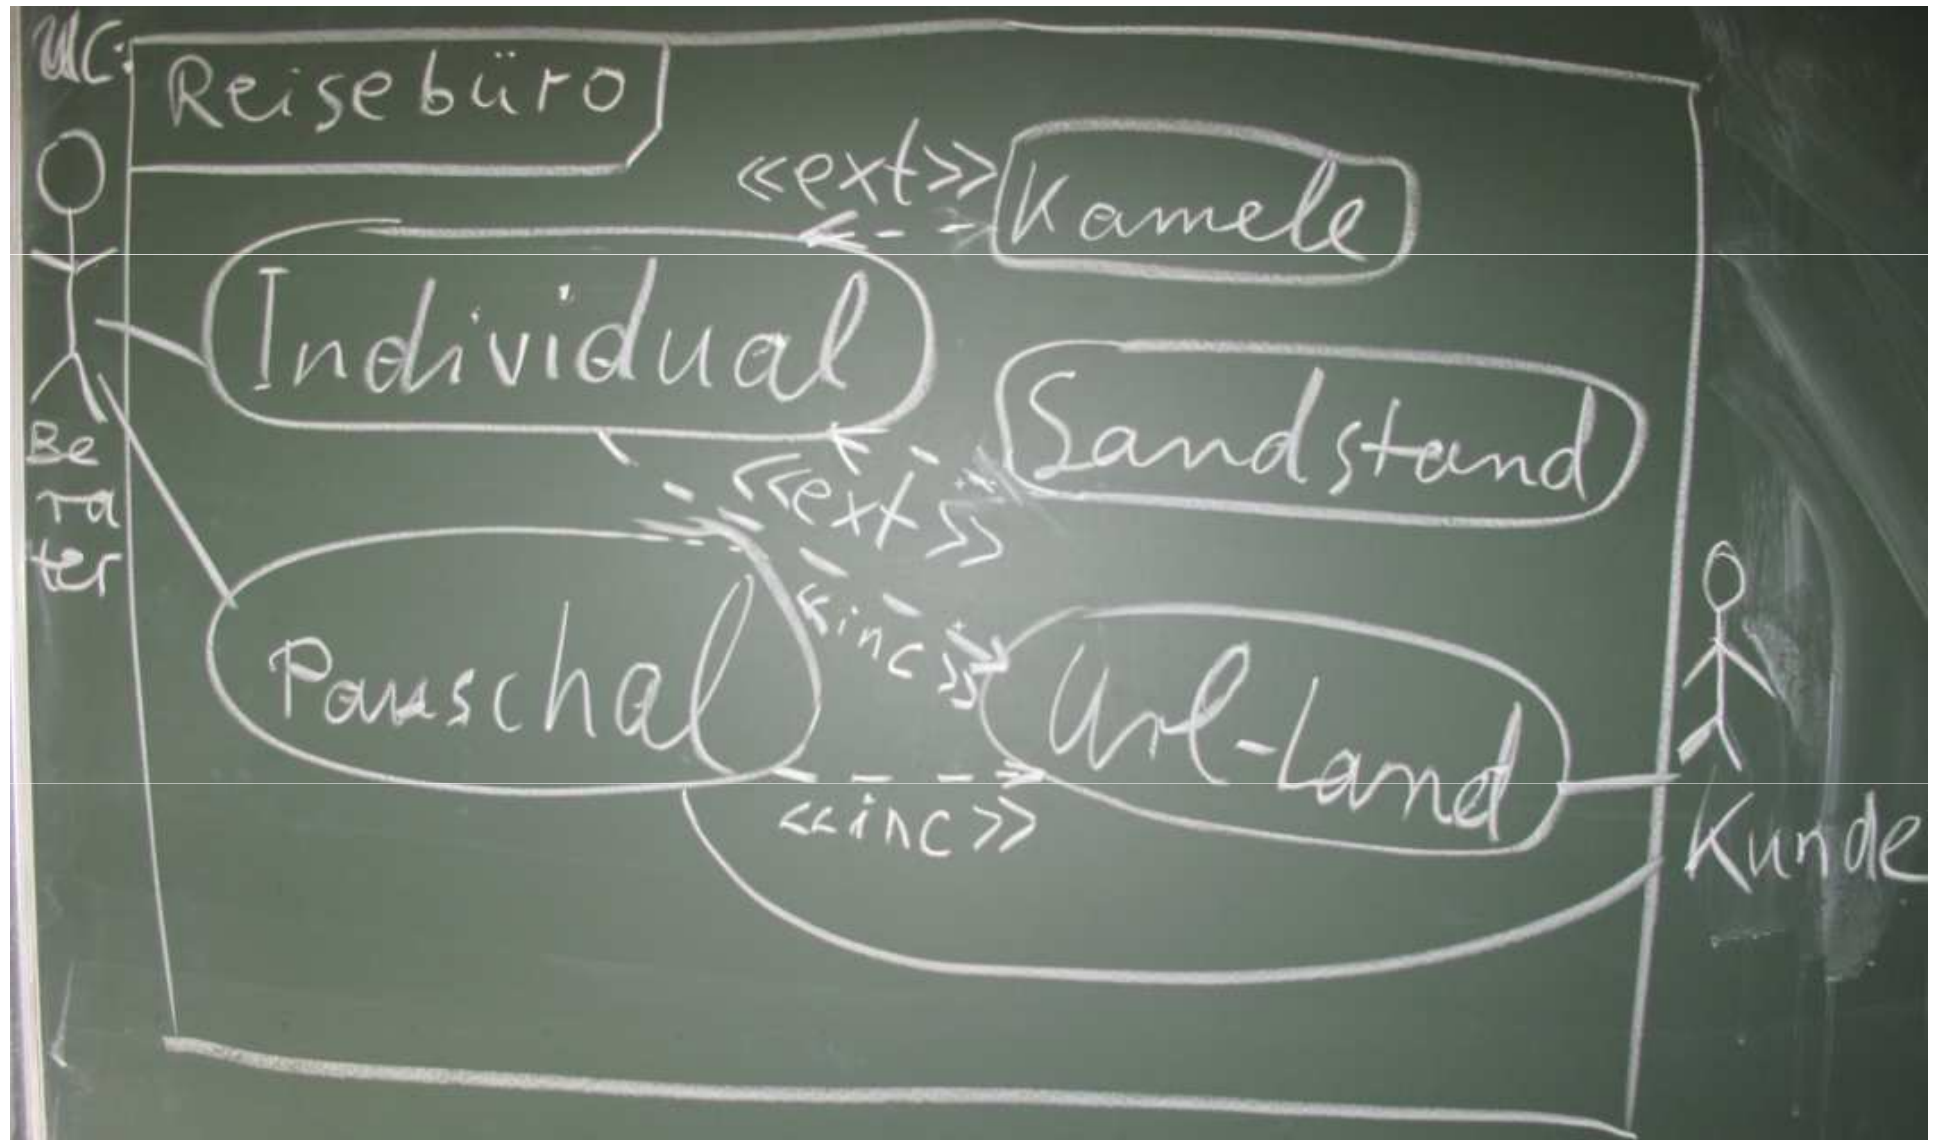 UC:
Reisebüro
<<ext>>
Kamele
Individual
Sandstand
Be
ra
ter
<<ext>>
<<inc>>
Pauschal
Url-Land
<<inc>>
Kunde